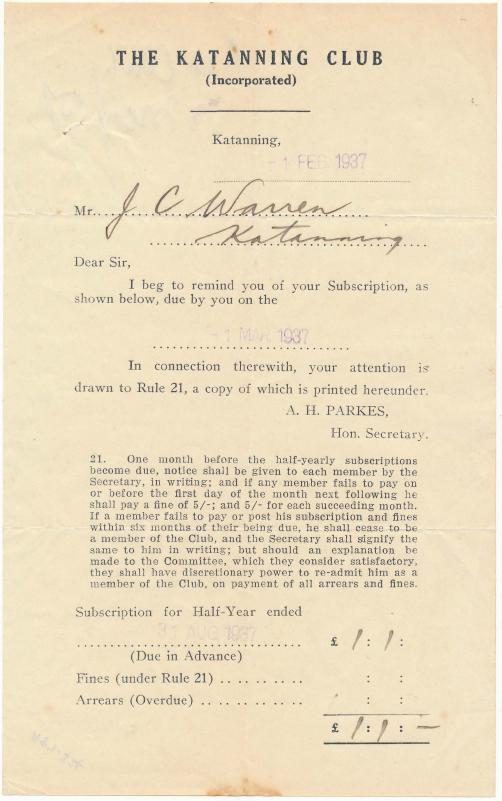 THE KATANNING CLUB
(Incorporated)
Katanning,
-1 FEB 1937
Mr. J C Warren
Katanning
Dear Sir,
I beg to remind you of your Subscription, as
shown below, due by you on the
-1 MAR 1937
In connection therewith, your attention is
drawn to Rule 21, a copy of which is printed hereunder.
A. H. PARKES,
Hon. Secretary.
21. One month before the half-yearly subscriptions
become due, notice shall be given to each member by the
Secretary, in writing; and if any member fails to pay on
or before the first day of the month next following he
shall pay a fine of 5/-; and 5/- for each succeeding month.
If a member fails to pay or post his subscription and fines
within six months of their being due, he shall cease to be
a member of the Club, and the Secretary shall signify the
same to him in writing; but should an explanation be
made to the Committee, which they consider satisfactory,
they shall have discretionary power to re-admit him as a
member of the Club, on payment of all arrears and fines.
Subscription for Half-Year ended
31 AUG 1937 £ 1 : 1 :
(Due in Advance)
Fines (under Rule 21) ........... : :
Arrears (Overdue) ........... : :
£ 1 : 1 : —